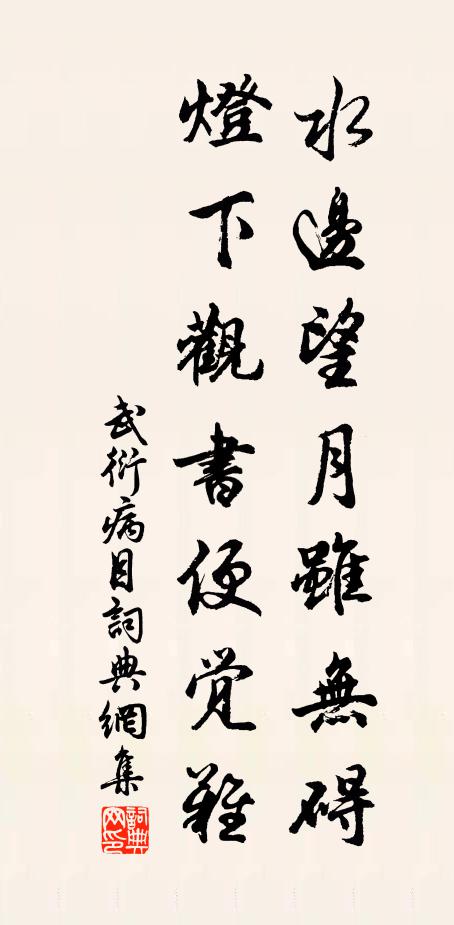 水邊望月雖無碍
燈下觀書便覺難
武衍病目詞典網集
詞典網印